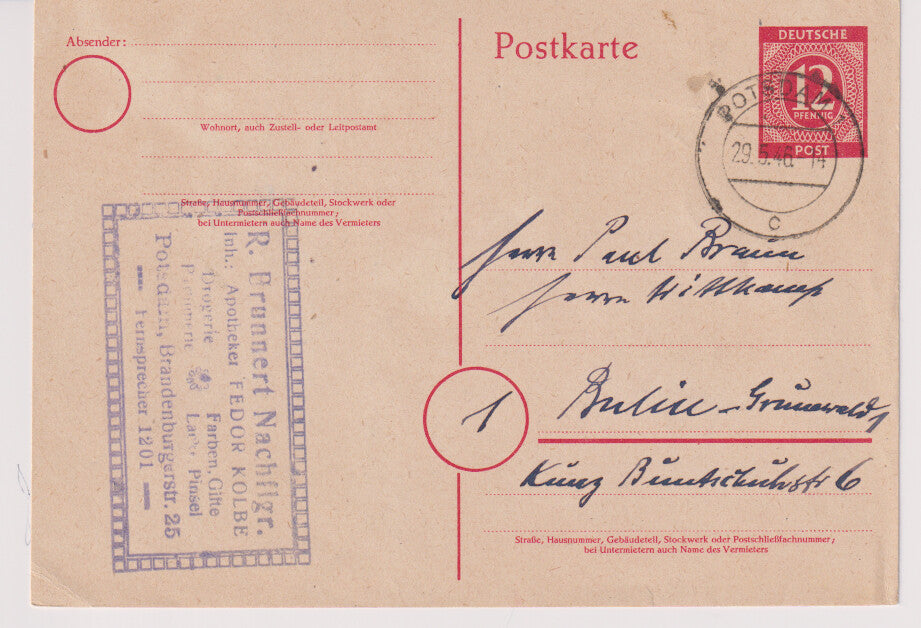 Absender:
Wohnort, auch Zustell- oder Leitpostamt
Straße, Hausnummer, Gebäudeteil, Stockwerk oder
Postschließfachnummer;
bei Untermietern auch Name des Vermieters
R. Brunnert Nachflgr.
Inh.: Apotheker FEDOR KOLBE
Drogerie Farben, Gifte
Lacke Pinsel
Potsdam, Brandenburgerstr. 25
Fernsprecher 1201
Postkarte
DEUTSCHE
12
PFENNIG
POST
POTSDAM
29.5.46.-14
c
Herrn Paul Braun
Herrn Wittkamp
1
Berlin-Grunewald 1
Kunz Buntschuhstr 6
Straße, Hausnummer, Gebäudeteil, Stockwerk oder Postschließfachnummer;
bei Untermietern auch Name des Vermieters